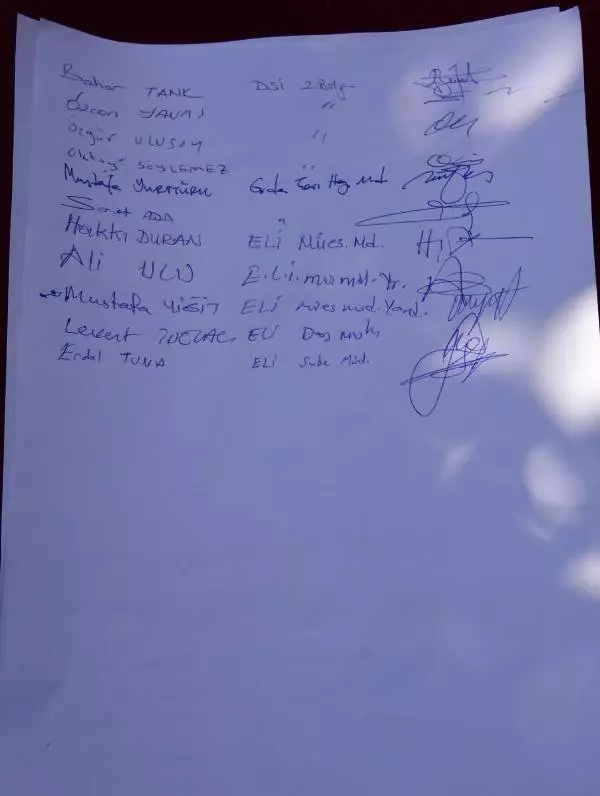 Bahar TANK DSİ 2 Bölg.
Özcan YAVAŞ "
Özgür ULUSOY "
Oktay SÖYLEMEZ "
Mustafa YURTTÜRK Gıda Tarı Hay Müd.
Samet ADA "
Hakkı DURAN ELİ Mües. Md.
Ali ULU E.L.İ. mü md. Yr.
Mustafa YİĞİT ELİ Mües müd. Yard.
Levent ELİ
Erdal TUNA ELİ Şube Müd.